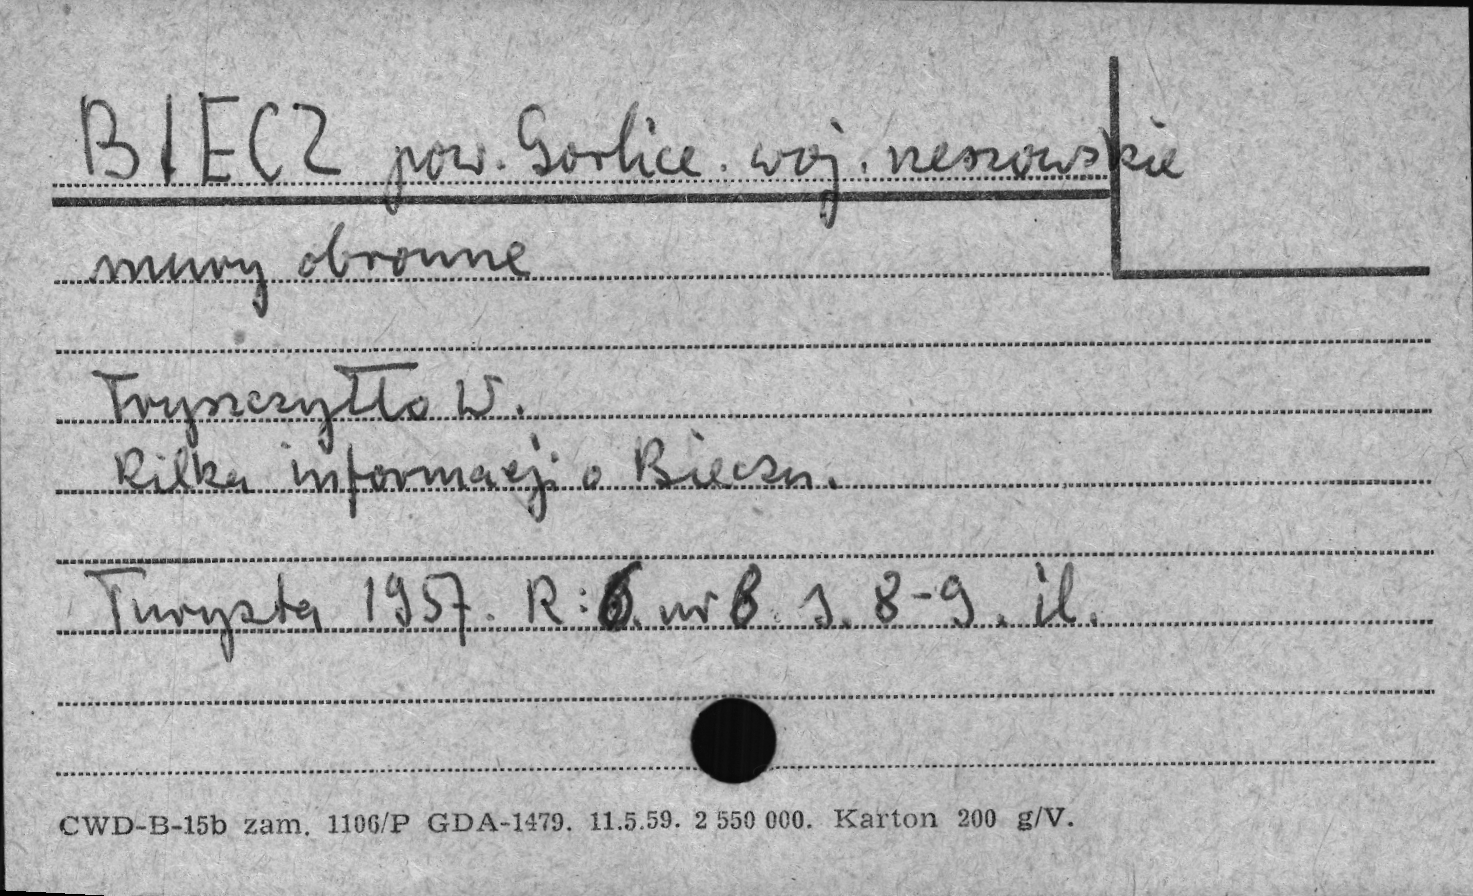 BIECZ pow. Gorlice. woj. rzeszowskie
mury obronne
Tryszczyłło W.
Kilka informacji o Bieczu.
Turysta 1957. R:6. nr 6. s. 8-9. il.
CWD-B-15b zam. 1106/P GDA-1479. 11.5.59. 2 550 000. Karton 200 g/V.